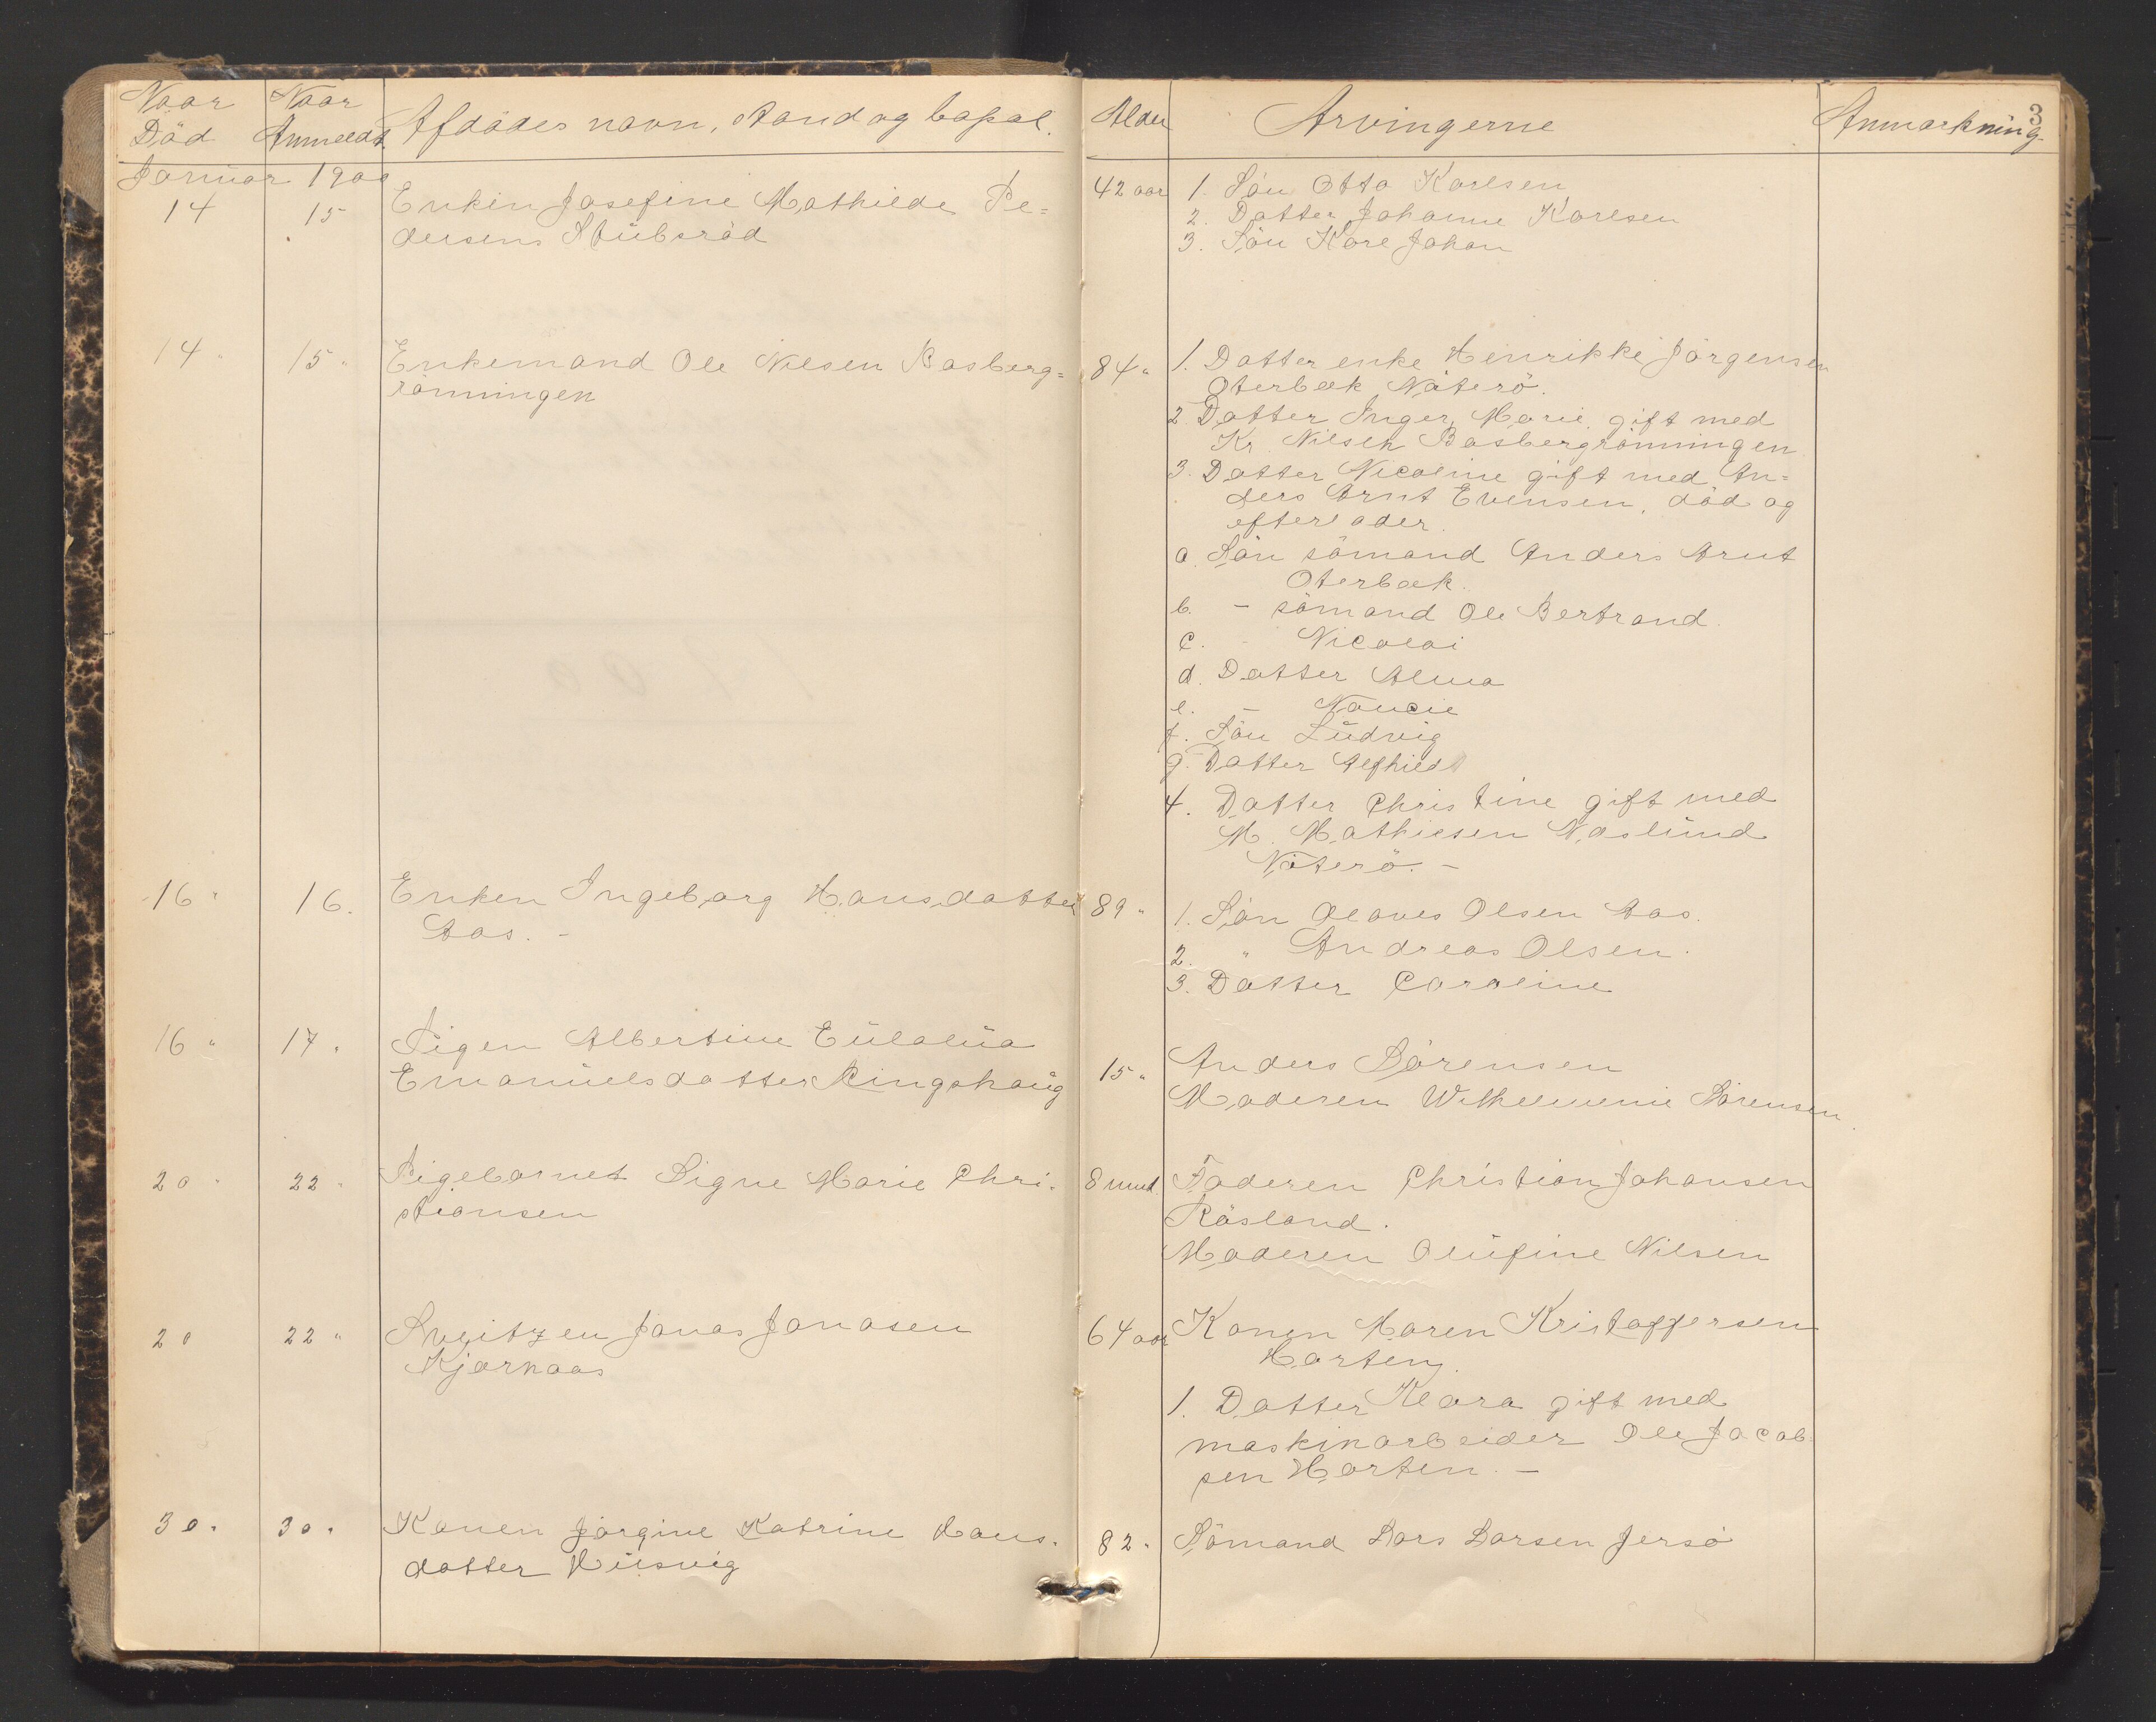 Naar Död
Naar Anmeldt.
Afdödes navn, stand og bopæl.
Alder
Arvingerne
Anmærkning
3
Januar 1900
14 15 Enkin Josefine Mathilde Pe=
dersens Stubsröd
42 aar
1. Sön Otto Karlsen
2. Datter Johanne Karlsen
3. Sön Karl Johan
14 " 15 " Enkemand Ole Nilsen Basberg=
rönningen
84 "
1. Datter enke Henrikke Jörgensen
Oterbæk Nöterö.
2 Datter Inger Marie gift med
Kr. Nilsen Basbergrönningen
3. Datter Nicoline gift med An=
ders Arnt Evensen, död og
efterlader.
a. Sön sömand Anders Arnt
Oterbæk.
b. - sömand Ole Bertrand.
c. - Nicolai
d. Datter Alma
e. - Nancie
f. Sön Ludvig
g. Datter Alfhild
4. Datter Christine gift med
M. Mathisen Næslund
Nöterö. -
16 " 16. Enken Ingeborg Hansdatter
Aas. -
89 "
1. Sön Olaves Olsen Aas.
2. " Andreas Olsen.
3. Datter Caroline
16 " 17 " Pigen Albertine Eulalia
Emanuelsdatter Ringshaug
15 "
Anders Sörensen
Moderen Wilhelmine Sörensen.
20 " 22 " Pigebarnet Signe Marie Chri-
stiansen
8 mnd.
Faderen Christian Johansen
Råsland.
Moderen Olufine Nilsen
20 22 " Jonas Jonasen
Kjærnaas
64 aar
Konen Maren Kristoffersen
Horten.
1. Datter Klara gift med
maskinarbeider Ole Jacob=
sen Horten. -
30 " 30 " Konen Jörgine Katrine Hans-
datter Husvig
82 "
Sömand Lars Larsen Jersö